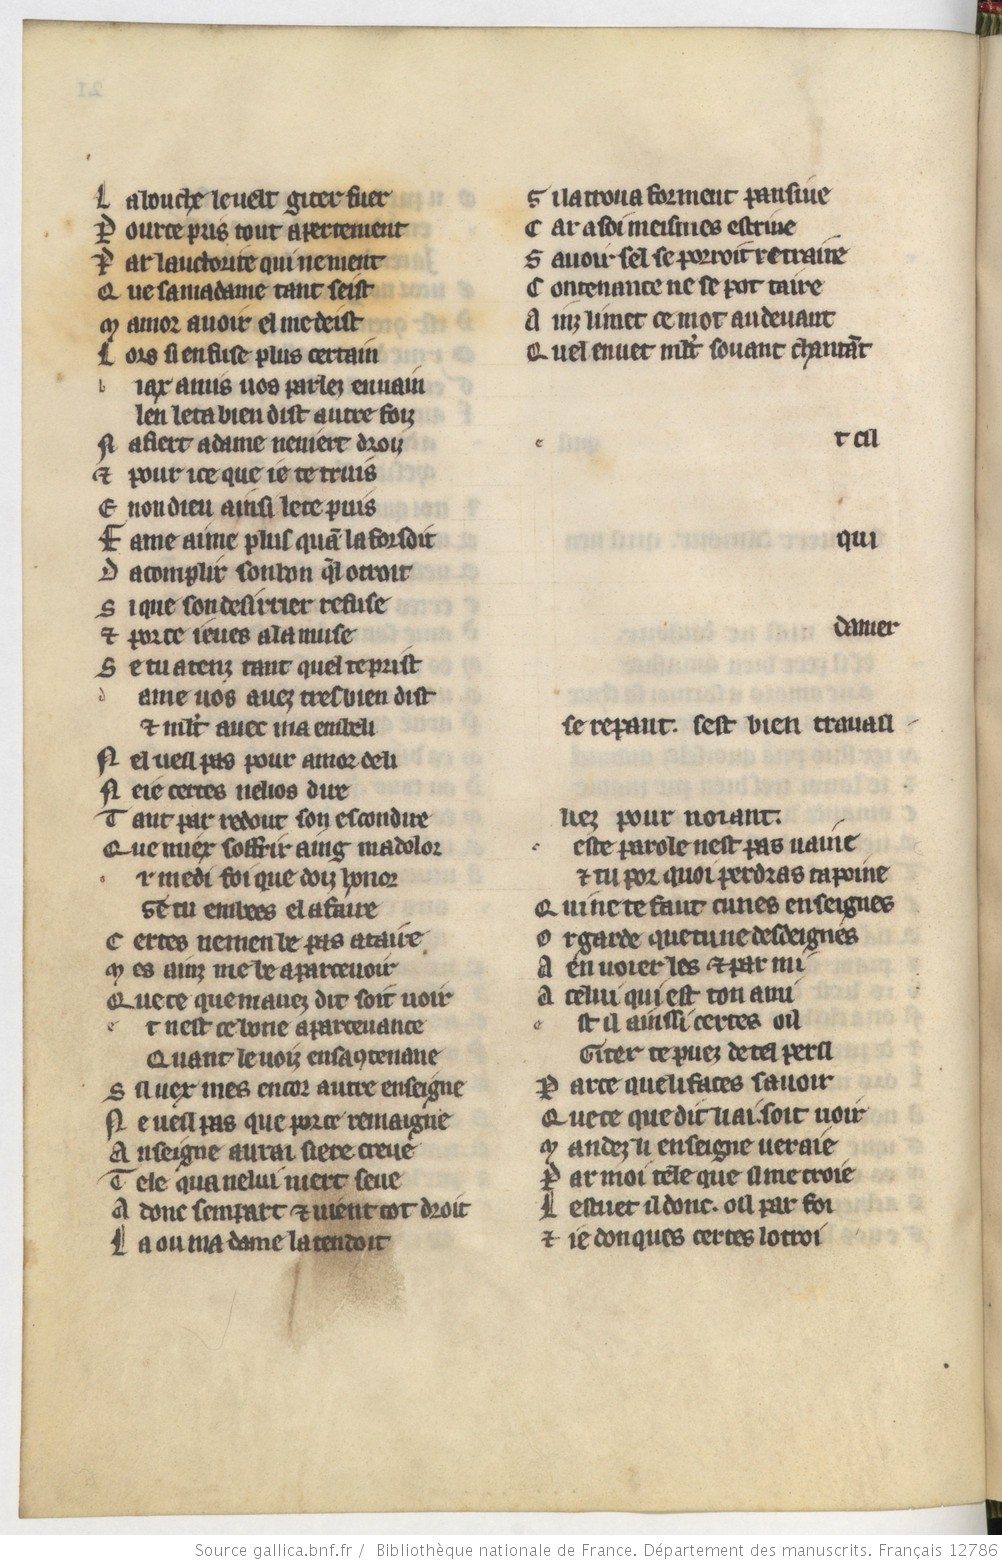 L a louche le velt giter fuer
P our ce pris tout apertement
P ar lauctorite qui ne ment
Q ue sa madame tant seist
M amor avoir el me deist
L ors si en fuse plus certain
b iax amis vos parlez en vain
len leta bien dist autre foiz
N afiert a dame
⁊ pour ice que ie te truis
E non dieu ainsi le te puis
F ame aime plus quā la forsdit
D acomplir son bon ql otroit
S i que son desirrier refuse
⁊ por ce ieues a la muse
S e tu atenz tant quel te prist
d ame vos avez tres bien dist
⁊ mlt avec ma embeli
N el veil pas pour amor deli
N e ie certes ne li os dire
T ant par redout son escondire
Q ue miex soffrir aing ma dolor
r me di foi que doiz honor
Se tu embres el afaire
C ertes nemenbre pas a taire
M es ainz me be apartevoir
Q ue ce que mavez dit soit voir
e t nest ce bone apartenance
Quant le voiz ensaintenane
S il uex mes encor autre enseigne
N e veil pas que por ce remaigne
A nseigne aurai si ere creue
T ele qua nelui niert seue
A donc sempart ⁊ vient tot droit
L a ou ma dame latendoit
S i la trova forment pansive
C ar a soi meismes estrive
S avoir sel se porroit retraire
C ontenance ne se pot taire
A inz li met ce mot au devant
Q uel en vet mlt sovant chantāt
e t cil
qui
damer
se repant. sest bien travail
liez pour noiant.
ceste parole nest pas vaine
⁊ tu por quoi perdras ta poine
Q ui ne te faut cunes enseignes
O r garde que tu ne desdeignes
A en voier les ⁊ par mi
A celui qui est ton ami
e st il ainssi certes oil
Giter te puez de tel peril
P ar ce que li faces savoir
Q ue ce que dit li ai. soit voir
M andez li enseigne veraie
P ar moi tele que il me croie
L estuet il donc. oil par foi
⁊ ie donques certes lotroi
Source gallica.bnf.fr / Bibliothèque nationale de France. Département des manuscrits. Français 12786